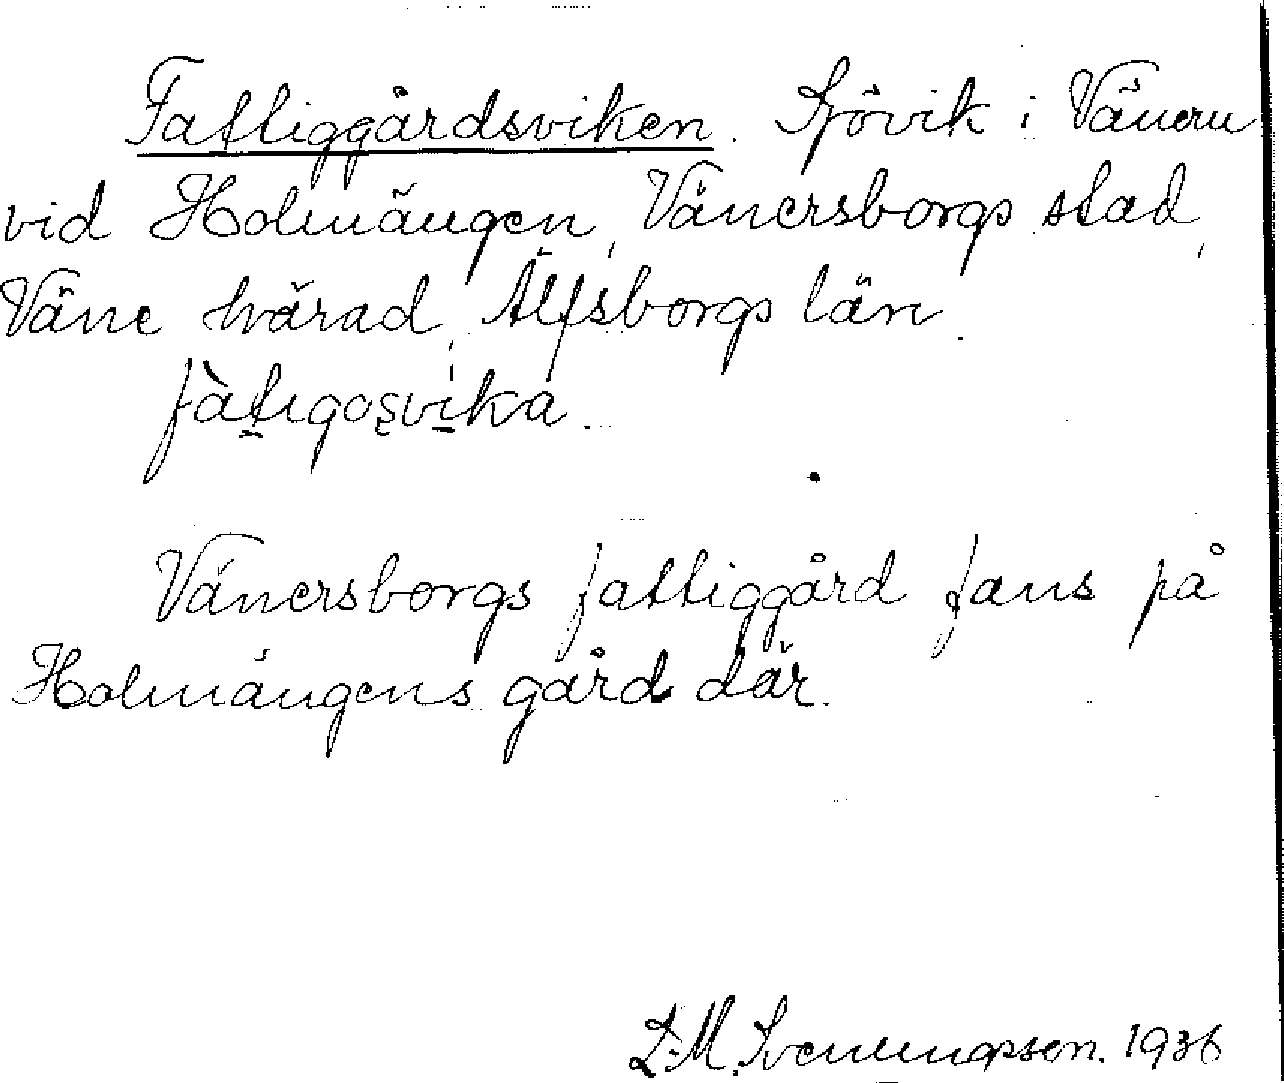 Fattiggårdsviken. Sjövik i Vänern
vid Holmängen, Vänersborgs stad,
Väne härad, Älfsborgs län.
fàtıgos̨vika.
Vänersborgs fattiggård fans på
Holmängens gård där.
L.M. Svenungsson. 1936